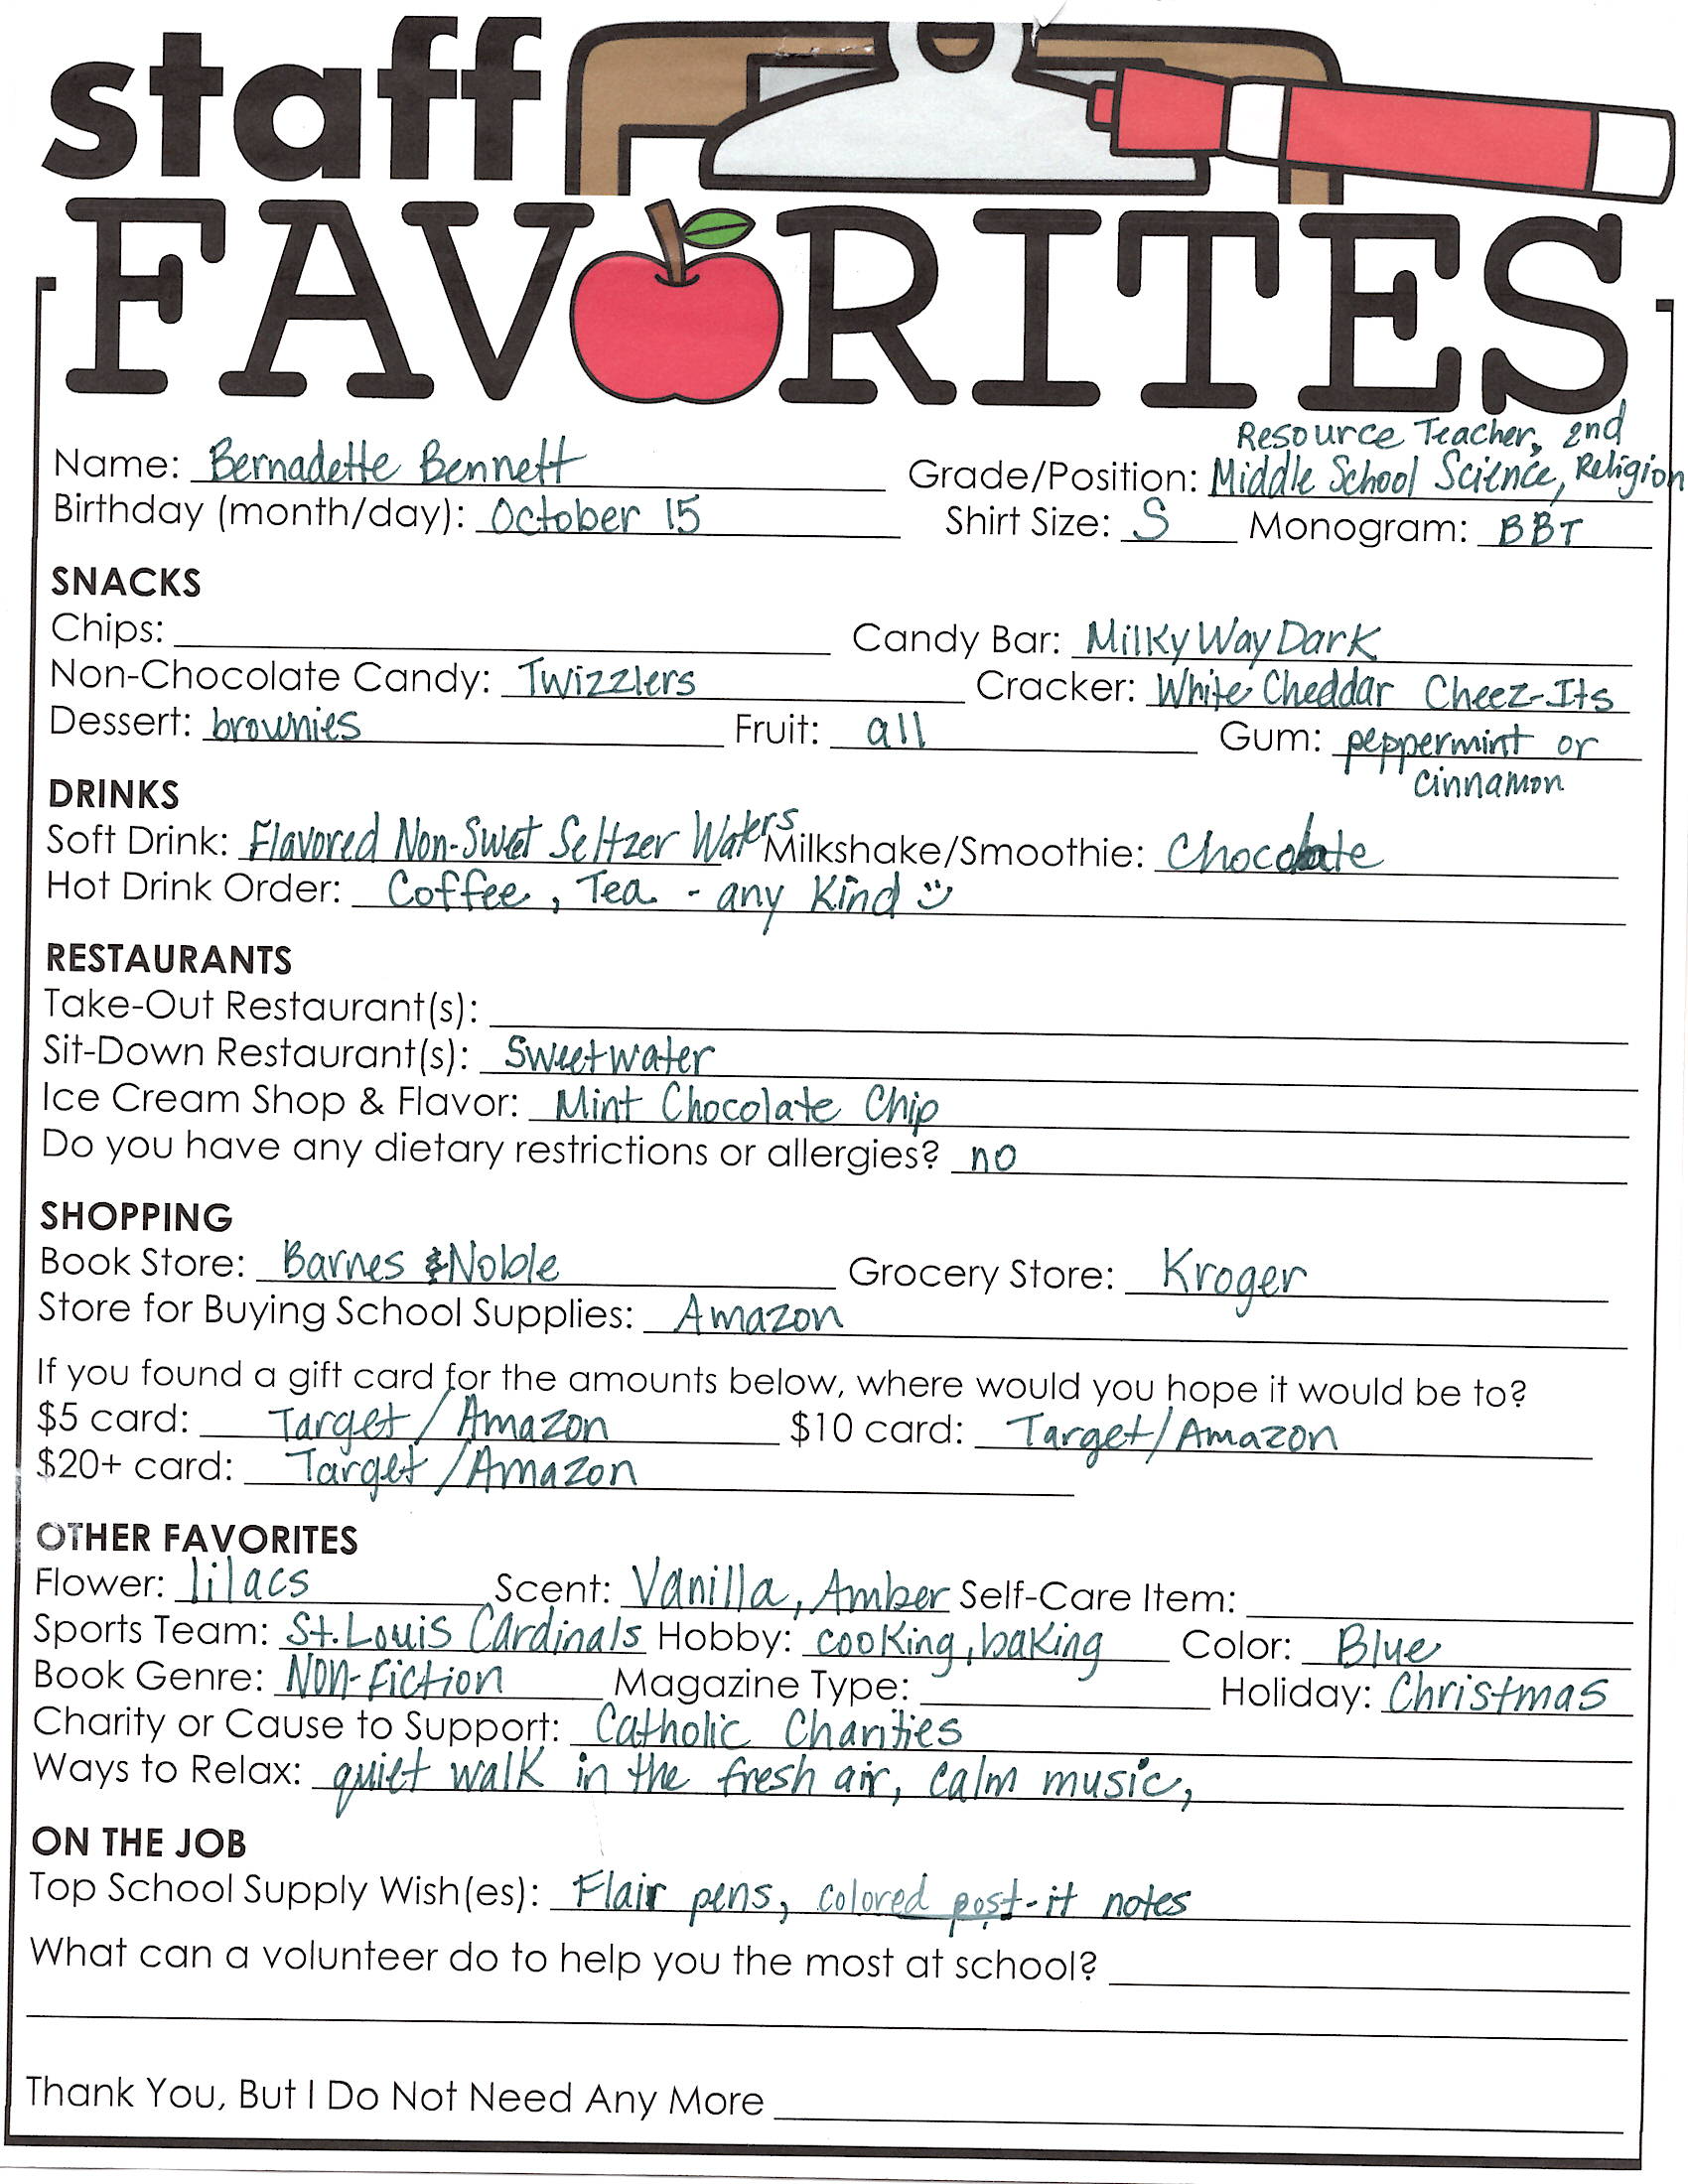 staff
FAVORITES
Resource Teacher, 2nd
Name: Bernadette Bennett Grade/Position: Middle School Science, Religion
Birthday (month/day): October 15 Shirt Size: S Monogram: BBT
SNACKS
Chips: Candy Bar: Milky Way Dark
Non-Chocolate Candy: Twizzlers Cracker: White Cheddar Cheez-Its
Dessert: brownies Fruit: all Gum: peppermint or
cinnamon
DRINKS
Soft Drink: Flavored Non-Sweet Seltzer Waters Milkshake/Smoothie: Chocolate
Hot Drink Order: Coffee, Tea - any kind
RESTAURANTS
Take-Out Restaurant(s):
Sit-Down Restaurant(s): Sweetwater
Ice Cream Shop & Flavor: Mint Chocolate Chip
Do you have any dietary restrictions or allergies? no
SHOPPING
Book Store: Barnes & Noble Grocery Store: Kroger
Store for Buying School Supplies: Amazon
If you found a gift card for the amounts below, where would you hope it would be to?
$5 card: Target / Amazon $10 card: Target/Amazon
$20+ card: Target /Amazon
OTHER FAVORITES
Flower: lilacs Scent: Vanilla, Amber Self-Care Item:
Sports Team: St. Louis Cardinals Hobby: cooking, baking Color: Blue
Book Genre: Non-fiction Magazine Type: Holiday: Christmas
Charity or Cause to Support: Catholic Charities
Ways to Relax: quiet walk in the fresh air, calm music,
ON THE JOB
Top School Supply Wish(es): Flair pens, colored post-it notes
What can a volunteer do to help you the most at school?
Thank You, But I Do Not Need Any More